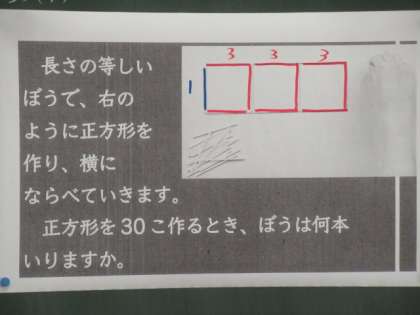 長さの等しい
ぼうで、右の
ように正方形を
作り、横に
ならべていきます。
正方形を30こ作るとき、ぼうは何本
いりますか。
3 3 3
1